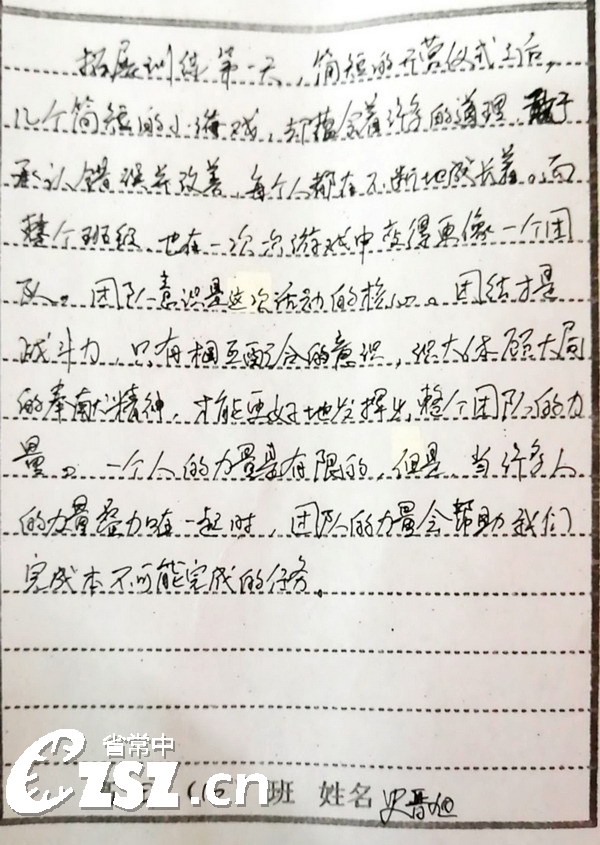 拓展训练第一天，简短的开营仪式之后，
几个简短的小游戏，却蕴含着许多的道理，敢于
承认错误并改善，每个人都在不断地成长着。而
整个班级，也在一次次游戏中变得更像一个团
队。团队意识是这次活动的核心。团结才是
战斗力，只有相互配合的意识，识大体顾大局
的奉献精神，才能更好地发挥出整个团队的力
量。一个人的力量是有限的，但是，当许多人
的力量叠加在一起时，团队的力量会帮助我们
完成本不可能完成的任务。
省常中
czsz.cn
班 姓名 史晋旭